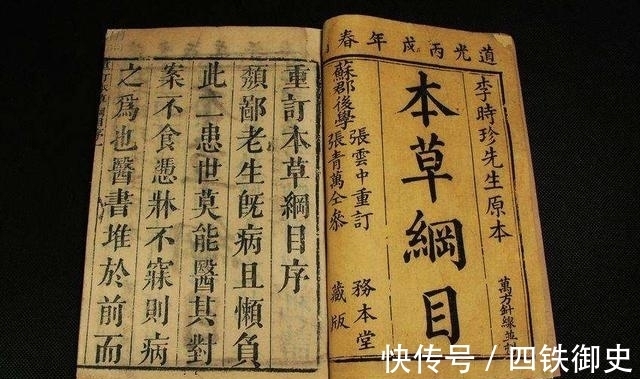 道光丙戌年春
李時珍先生原本
本草綱目
萬方針線並
蘇郡後學
張雲中重訂
張青萬仝參
務本堂
藏版
重訂本草綱目序
頽鄙老生旣病且懶負
此二患世莫能醫其對
案不食慿牀不寐則病
之爲也醫書堆於前而
快传号 / 四铁御史